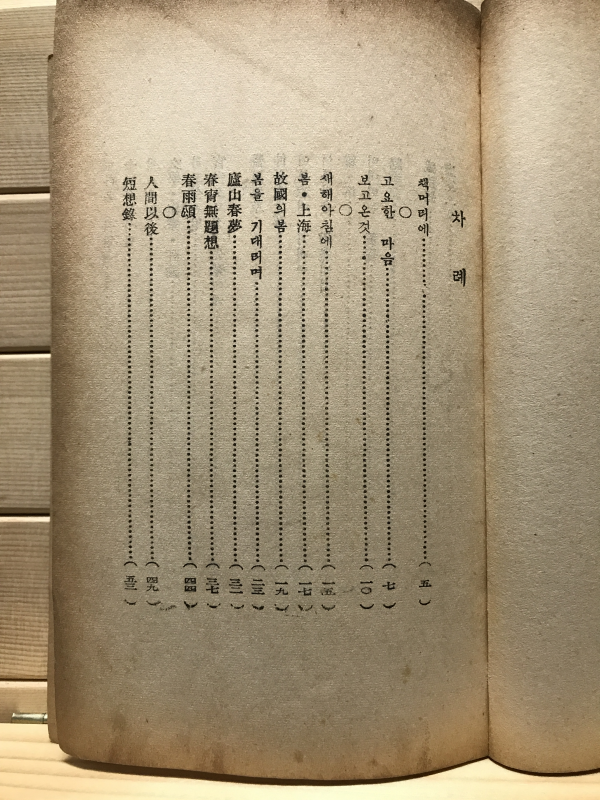 차례
책머리에(五)
○
고요한 마음(七)
보고온것(一〇)
○
새해아침에(一五)
봄・上海(一七)
故國의봄(一九)
봄을 기대리며(二三)
廬山春夢(三二)
春宵無題想(三七)
春雨頌(四四)
○
人間以後(四九)
短想錄(五三)